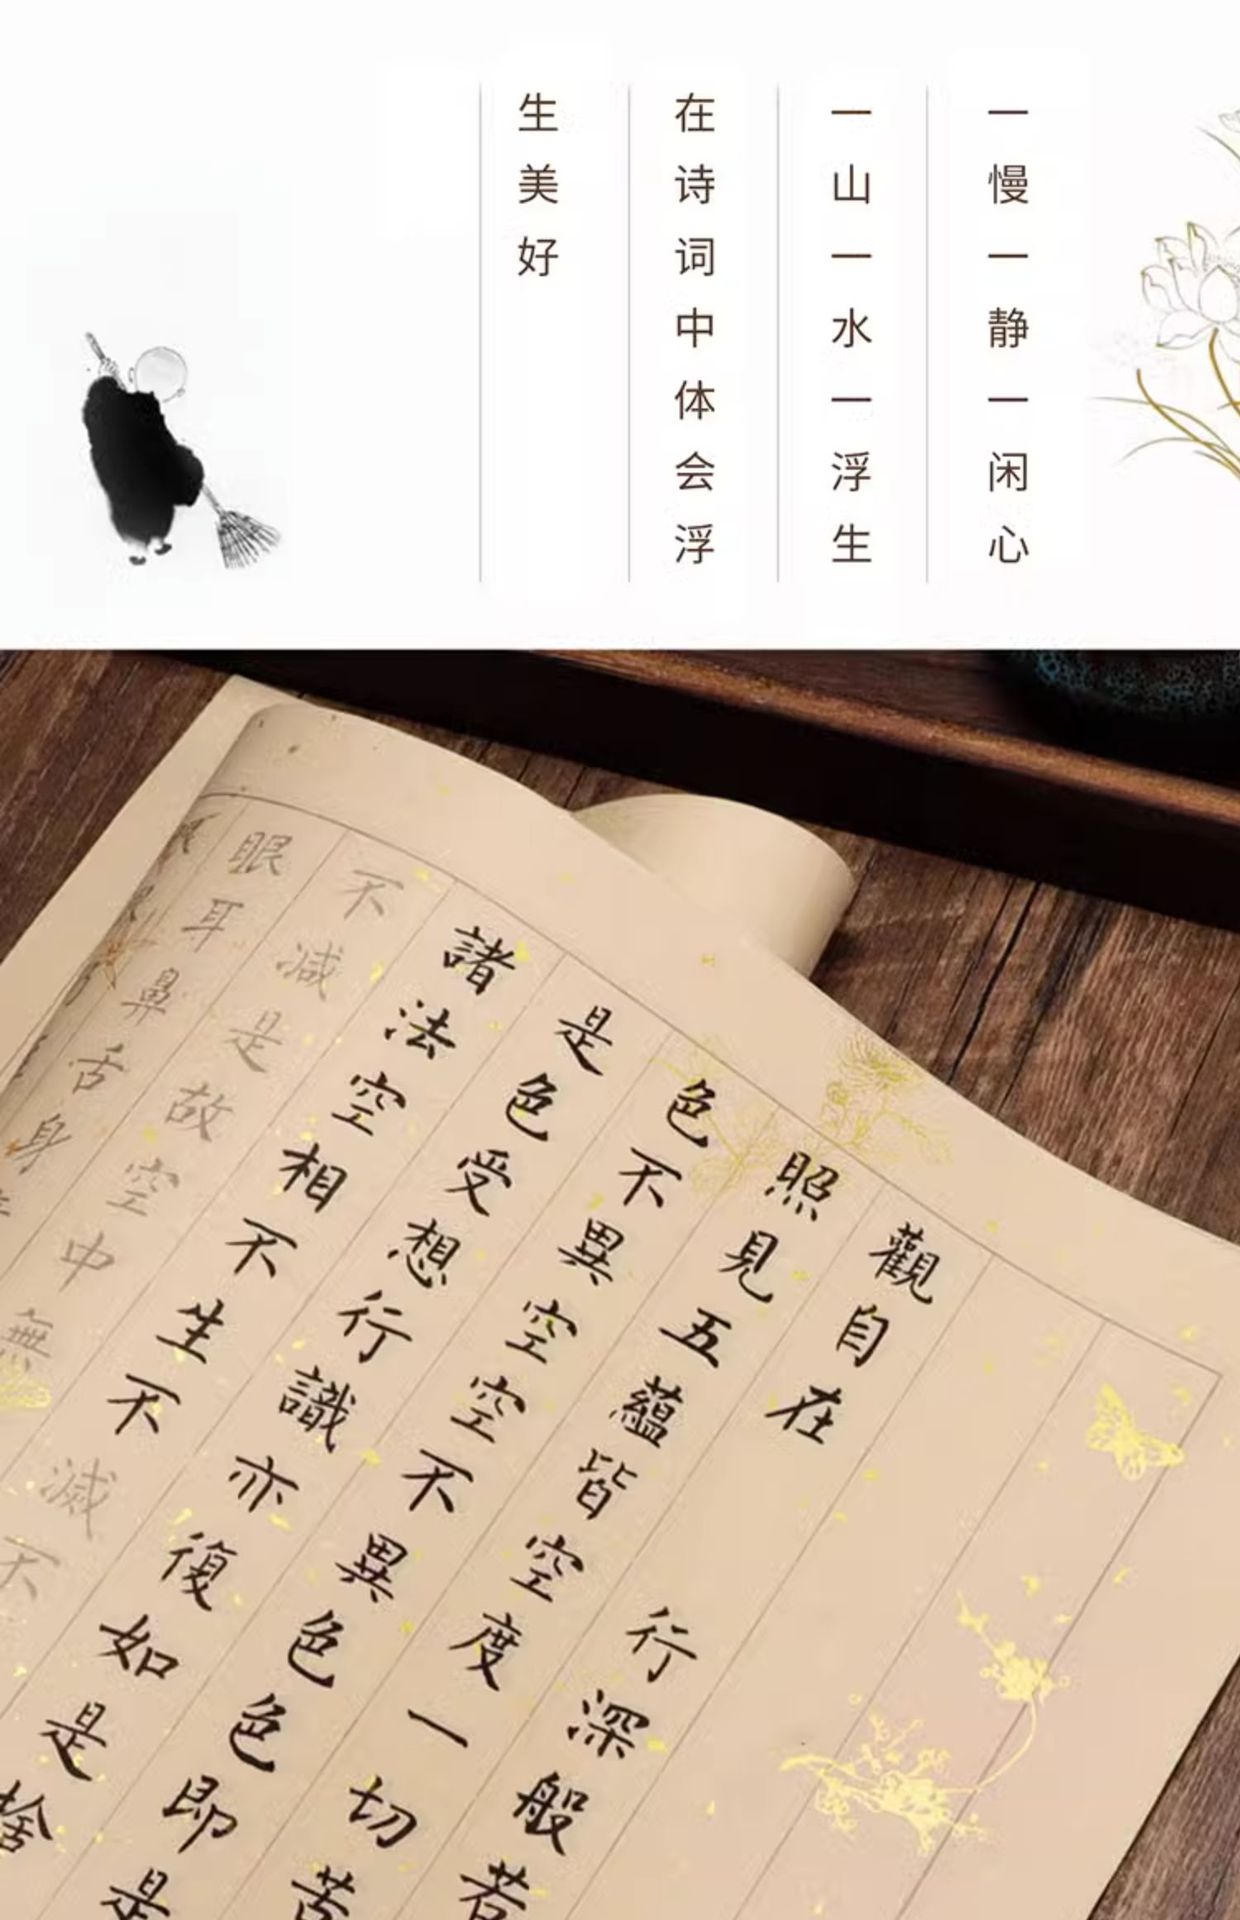 一慢一静一闲心
一山一水一浮生
在诗词中体会浮
生美好
觀自在
行深般若
照見五蘊皆空度一切苦
色不異空空不異色色即是
是色受想行識亦復如是舍
諸法空相不生不滅不
不減是故空中無
眼耳鼻舌身